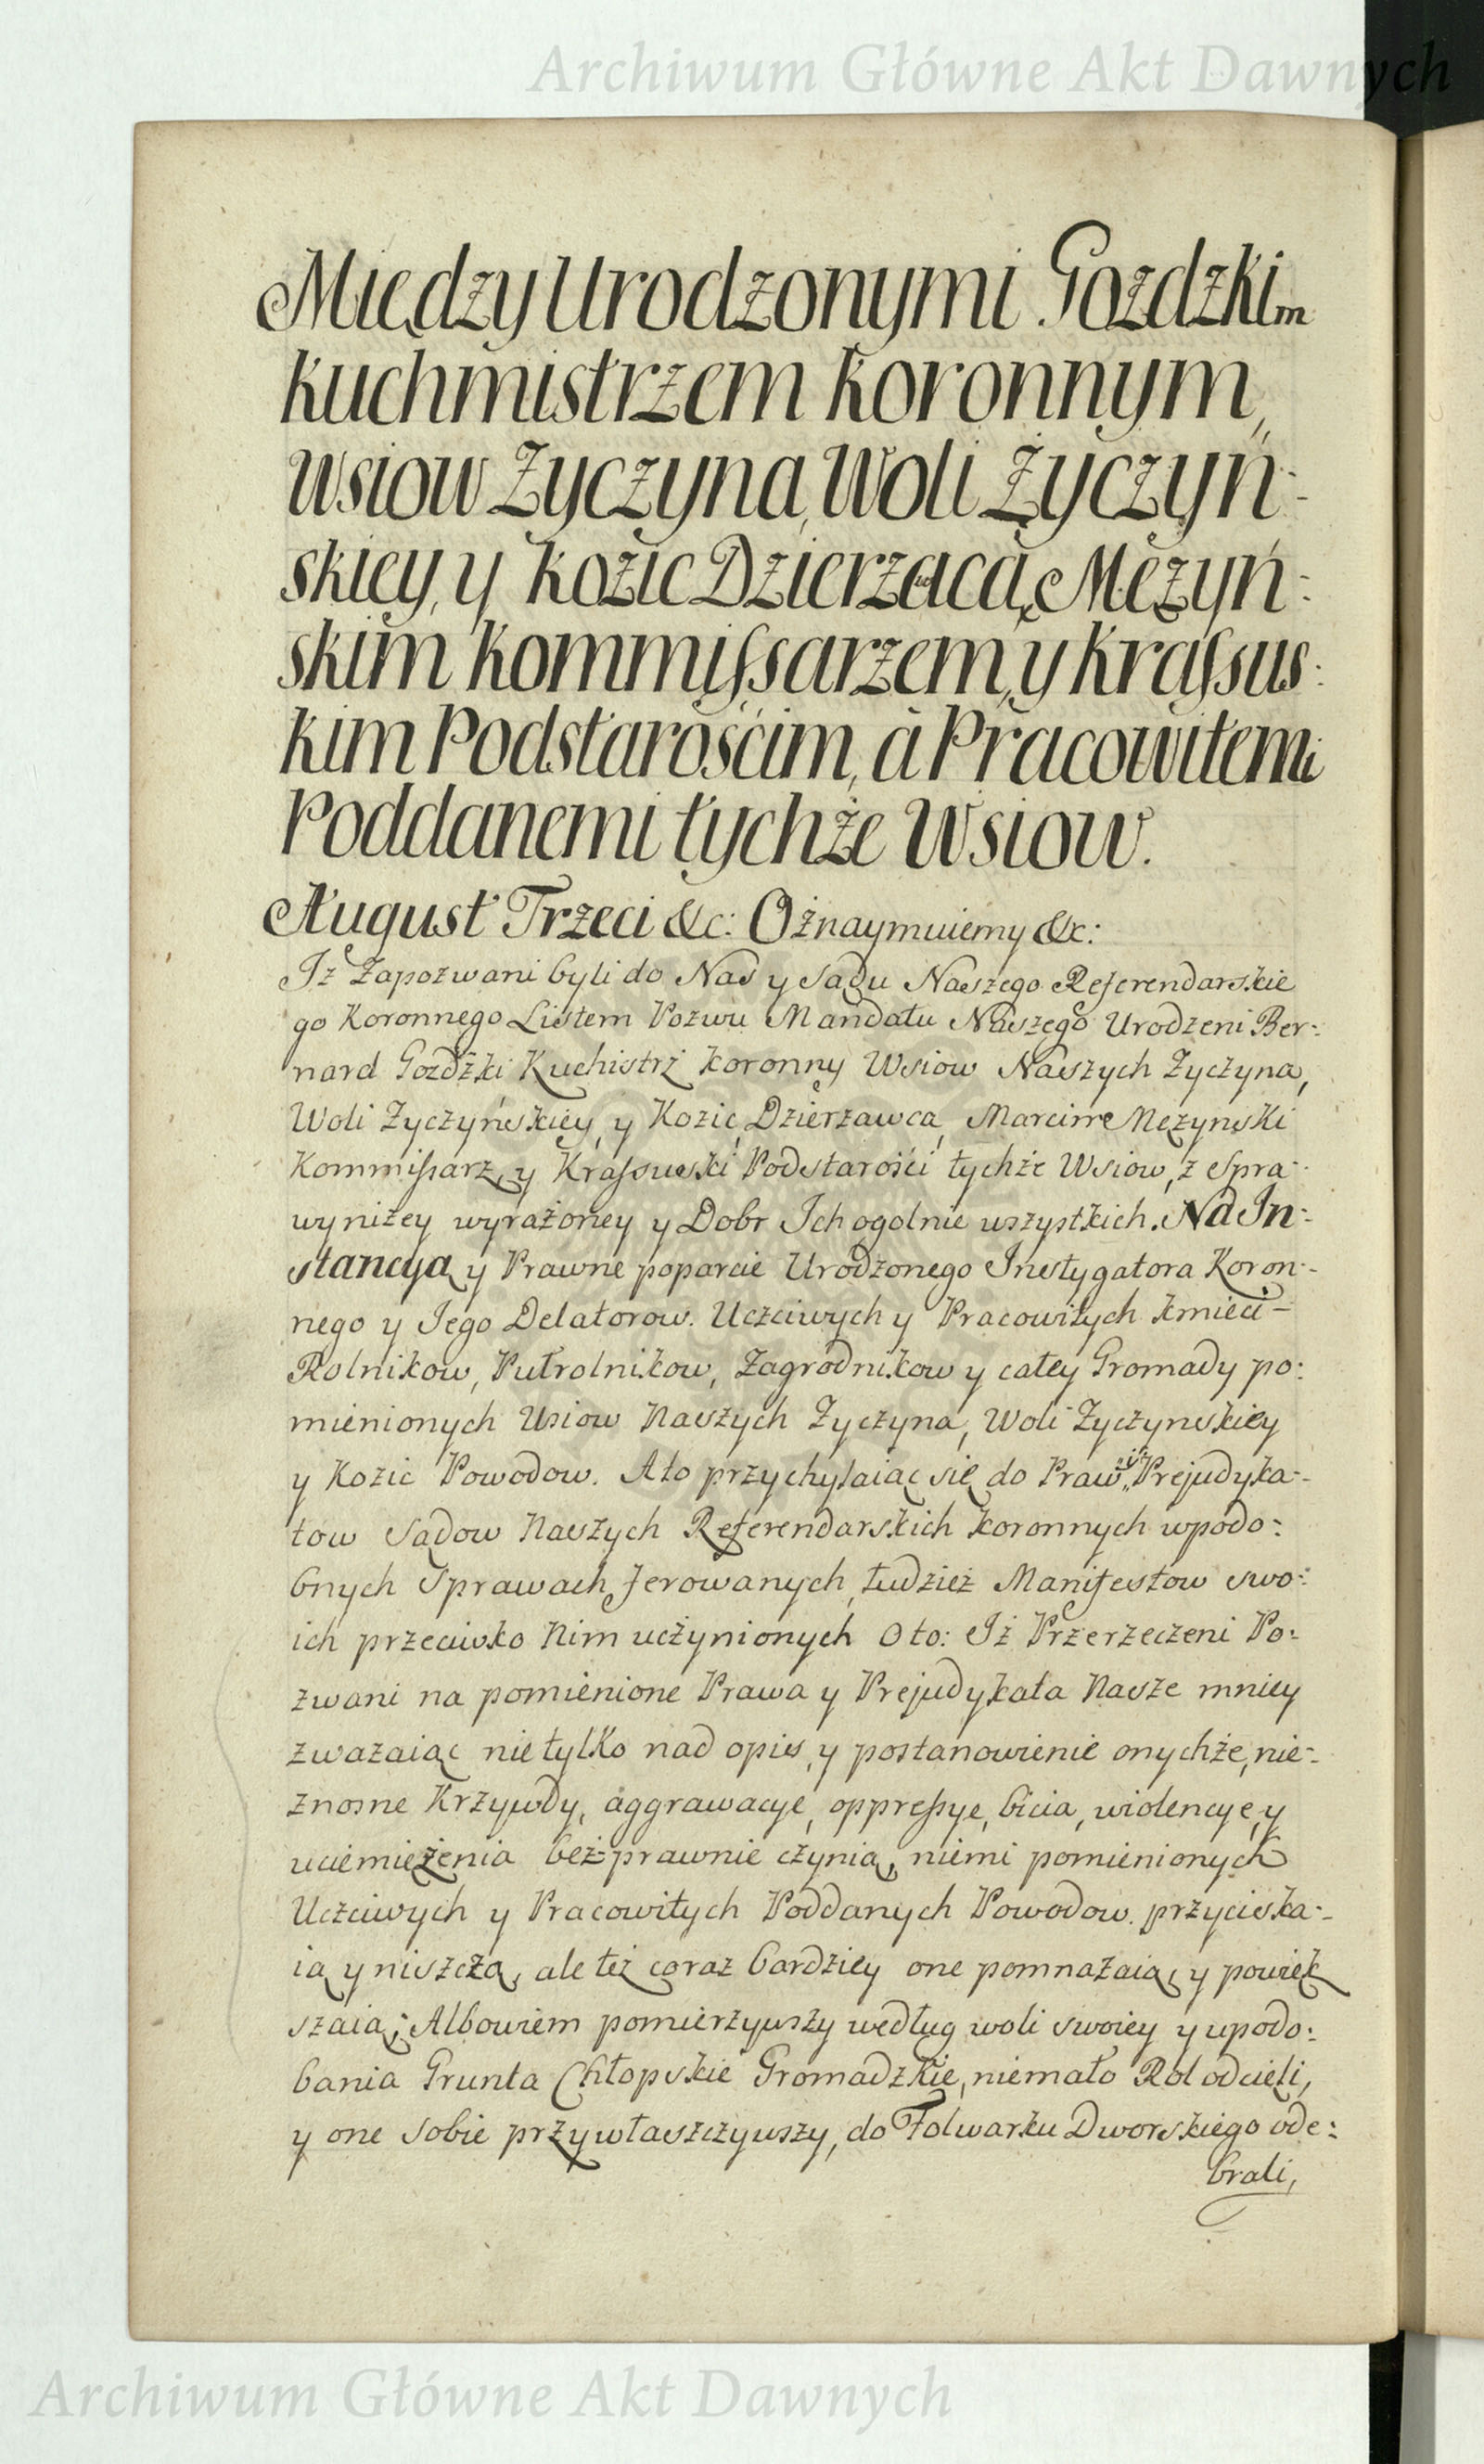 Archiwum Główne Akt Dawnych
Między Urodzonymi Gozdzkim
Kuchmistrzem Koronnym,
Wsiow Zyczyna, Woli Zyczyń-
skiey, y Kozic Dzierzacą, Męzyń:
skim Kommissarzem, y Krassus:
kim Podstarośćim, á Pracowitemi
Poddanemi tychże Wsiow.
August Trzeci &c: Oznaymuiemy &c:
Iż Zapozwani byli do Nas y Sądu Naszego Referendarskie
go Koronnego Listem Pozwu Mandatu Naszego Urodzeni Ber:
nard Gozdzki Kuchistrz Koronny Wsiow Naszych Zyczyna,
Woli Zyczyńskiey, y Kozic, Dzierzawca, Marcin Męzynski
Kommissarz, y Krassuski Podstarości tychże Wsiow, z Spra-
wy niżey wyrażoney y Dobr Ich ogolnie wszystkich. Na In:
stancyą y Prawne poparcie Urodzonego Instygatora Koron-
nego y Jego Delatorow. Uczciwych y Pracowitych Kmieci-
Rolnikow, Pułrolnikow, Zagrodnikow y całey Gromady po:
mienionych Wsiow Naszych Zyczyna, Woli Zyczynskiey
y Kozic Powodow. Ato przychylaiąc się do Praw, iż Prejudyka-
tow Sądow Naszych Referendarskich Koronnych wpodo:
bnych Sprawach ferowanych, tudzież Manifestow swo:
ich przeciwko Nim uczynionych Oto: Iż Przerzeczeni Po:
zwani na pomienione Prawa y Prejudykata Nasze mniey
zważaiąc nietylko nad opis, y postanowienie onychże, nie-
znosne Krzywdy, aggrawacye, oppressye, bicia, wiolencye, y
uciemiężenia bez-prawnie czynią, niemi pomienionych
Uczciwych y Pracowitych Poddanych Powodow. przyciska-
ią y niszczą, ale też coraz bardziey one pomnażaią, y powięk
szaią; Albowiem pomierzywszy według woli swoiey y upodo:
bania Grunta Chłopskie Gromadzkie, niemało Rol odcięli,
y one sobie przywłaszczywszy, do Folwarku Dworskiego ode:
brali,
Archiwum Główne Akt Dawnych